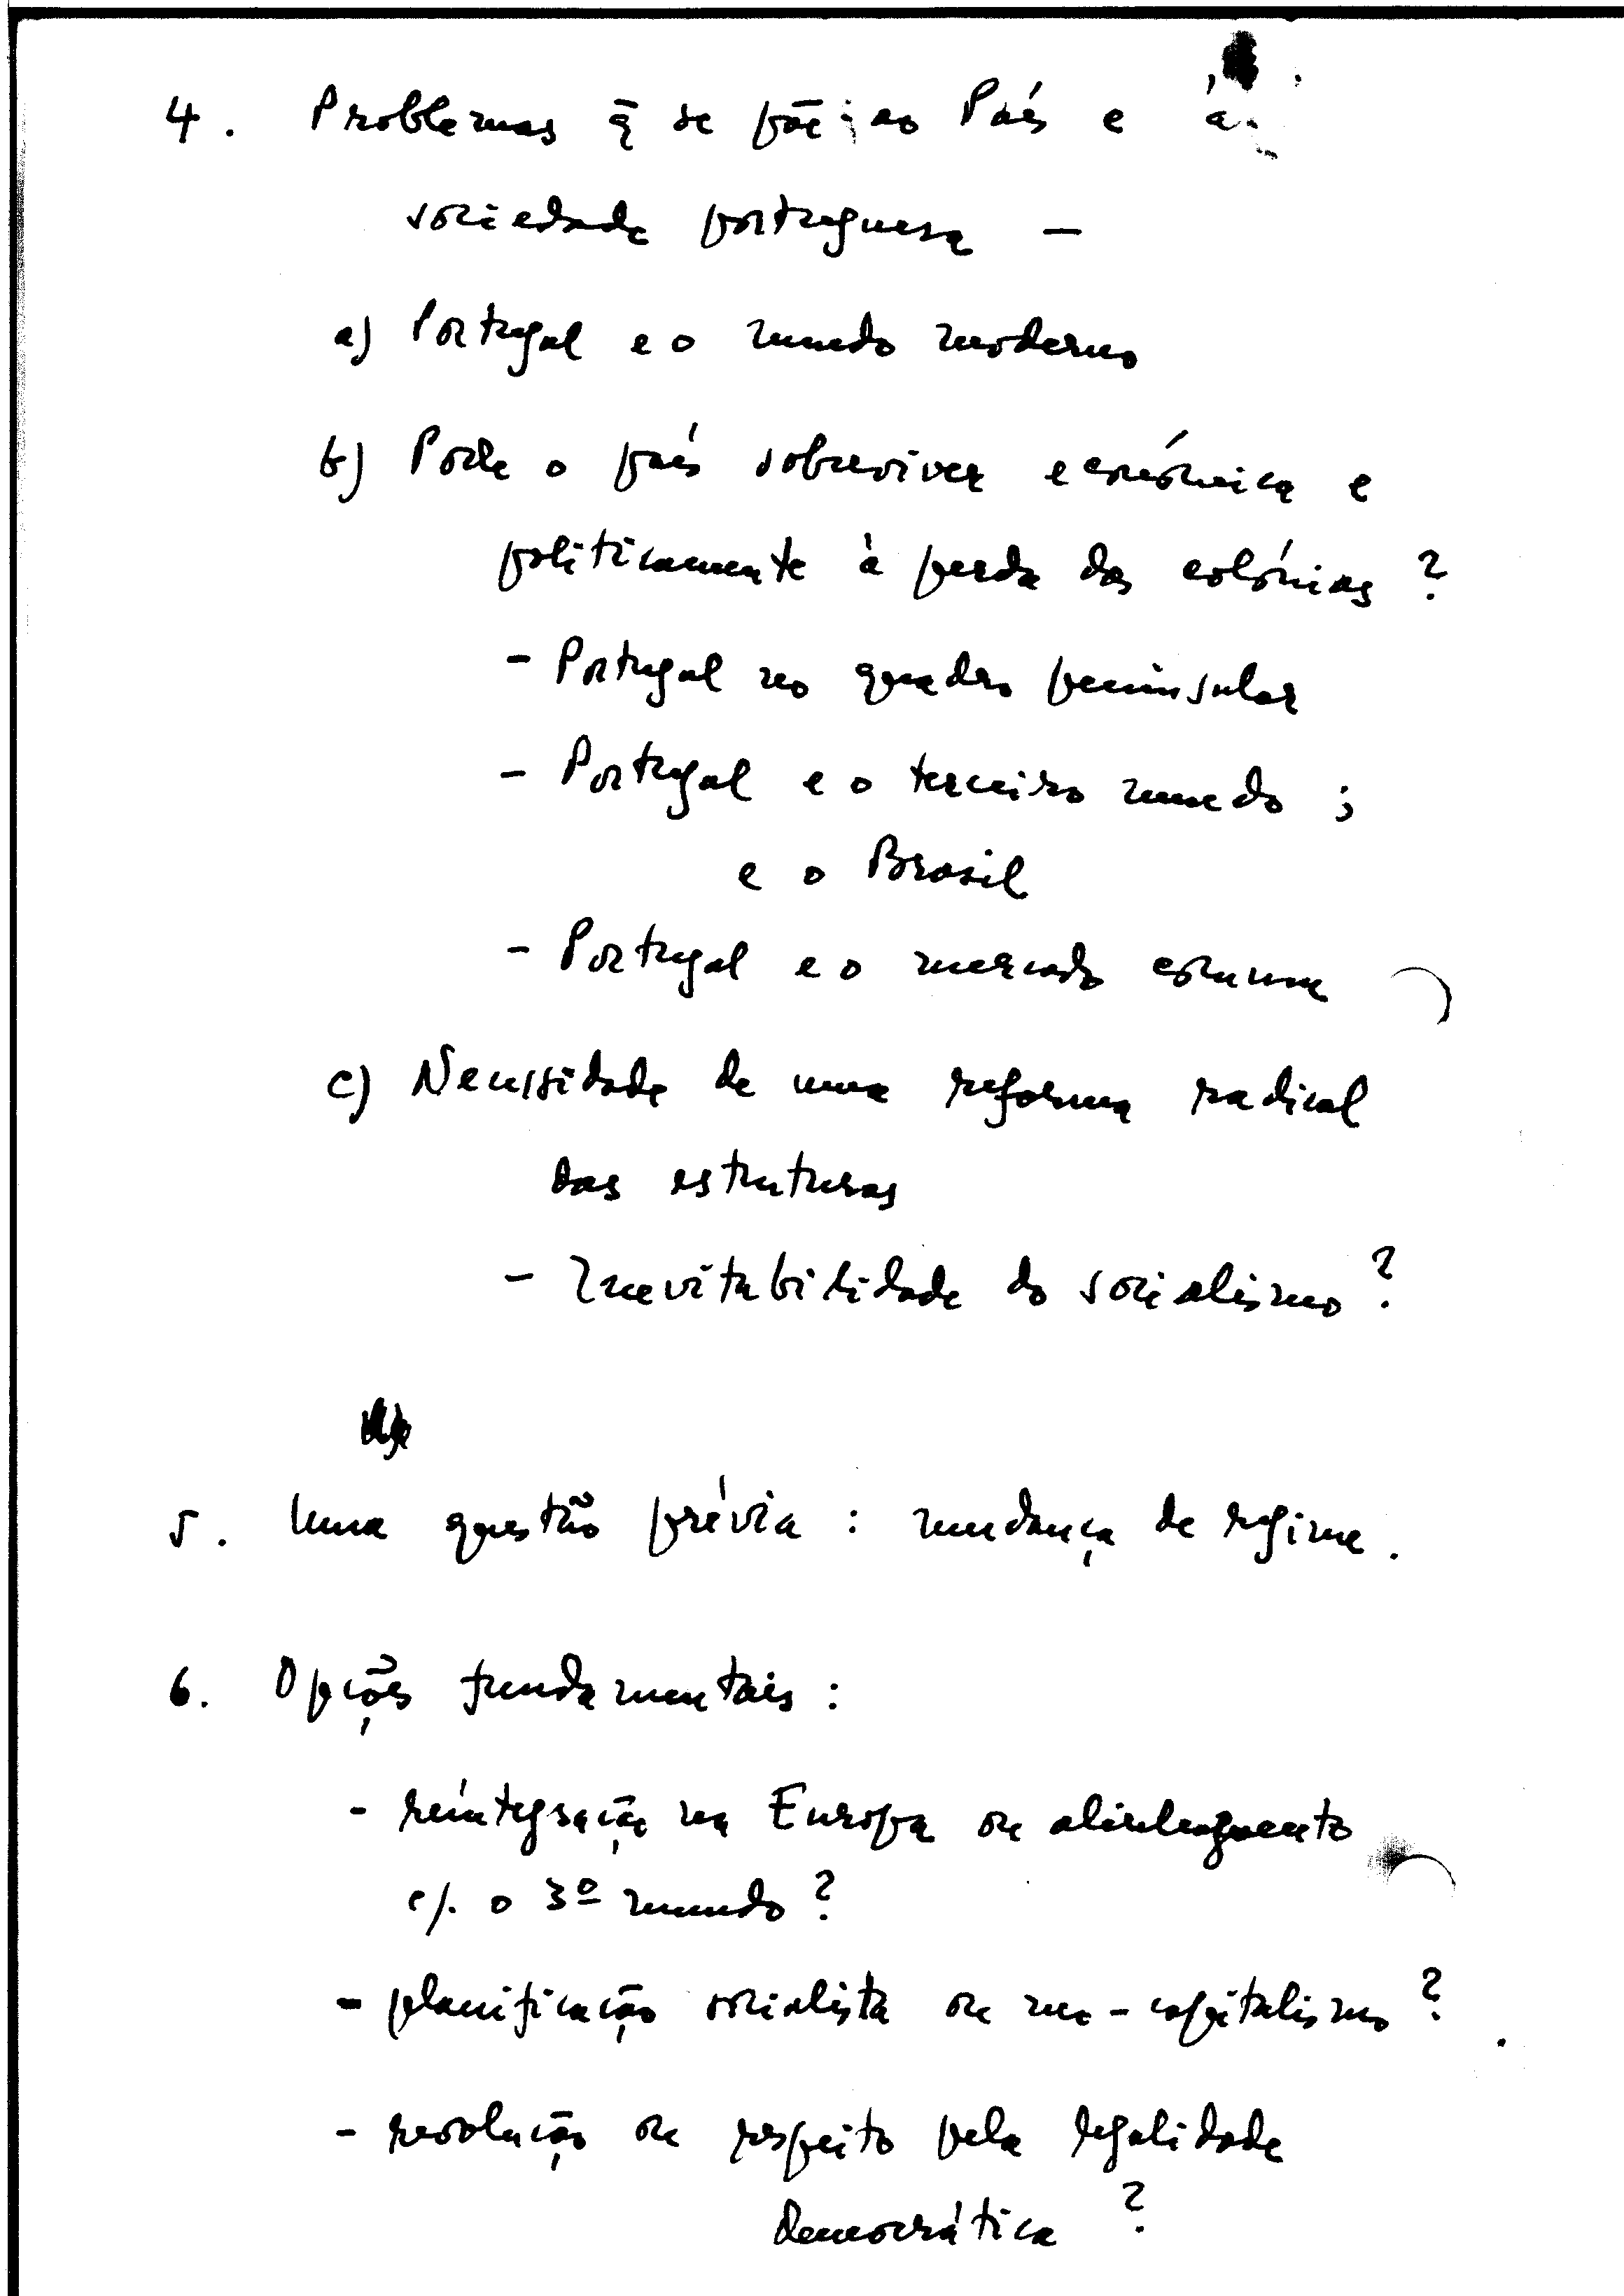 4. Problemas q̄ se põe ao País e à
sociedade portuguesa —
a) Portugal e o mundo moderno
b) Pode o país sobreviver económica e
politicamente à perda das colónias ?
- Portugal no quadro peninsular
- Portugal e o terceiro mundo ;
e o Brasil
- Portugal e o mercado comum
c) Necessidade de uma reforma radical
das estruturas
- Inevitabilidade do socialismo ?
5. Uma questão prévia : mudança de regime.
6. Opções fundamentais :
- reintegração na Europa ou alinhamento
c/. o 3º mundo ?
- planificação socialista ou neo-capitalismo ?
- revolução ou respeito pela legalidade
democrática ?